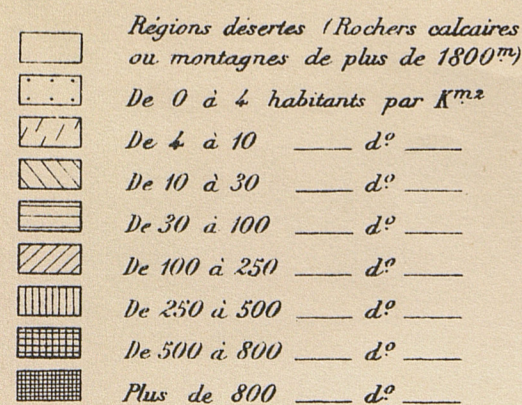 Régions désertes (Rochers calcaires
ou montagnes de plus de 1800m)
De 0 à 4 habitants par Km2
De 4 à 10 ___ do ___
De 10 à 30 ___ do ___
De 30 à 100 ___ do ___
De 100 à 250 ___ do ___
De 250 à 500 ___ do ___
De 500 à 800 ___ do ___
Plus de 800 ___ do ___